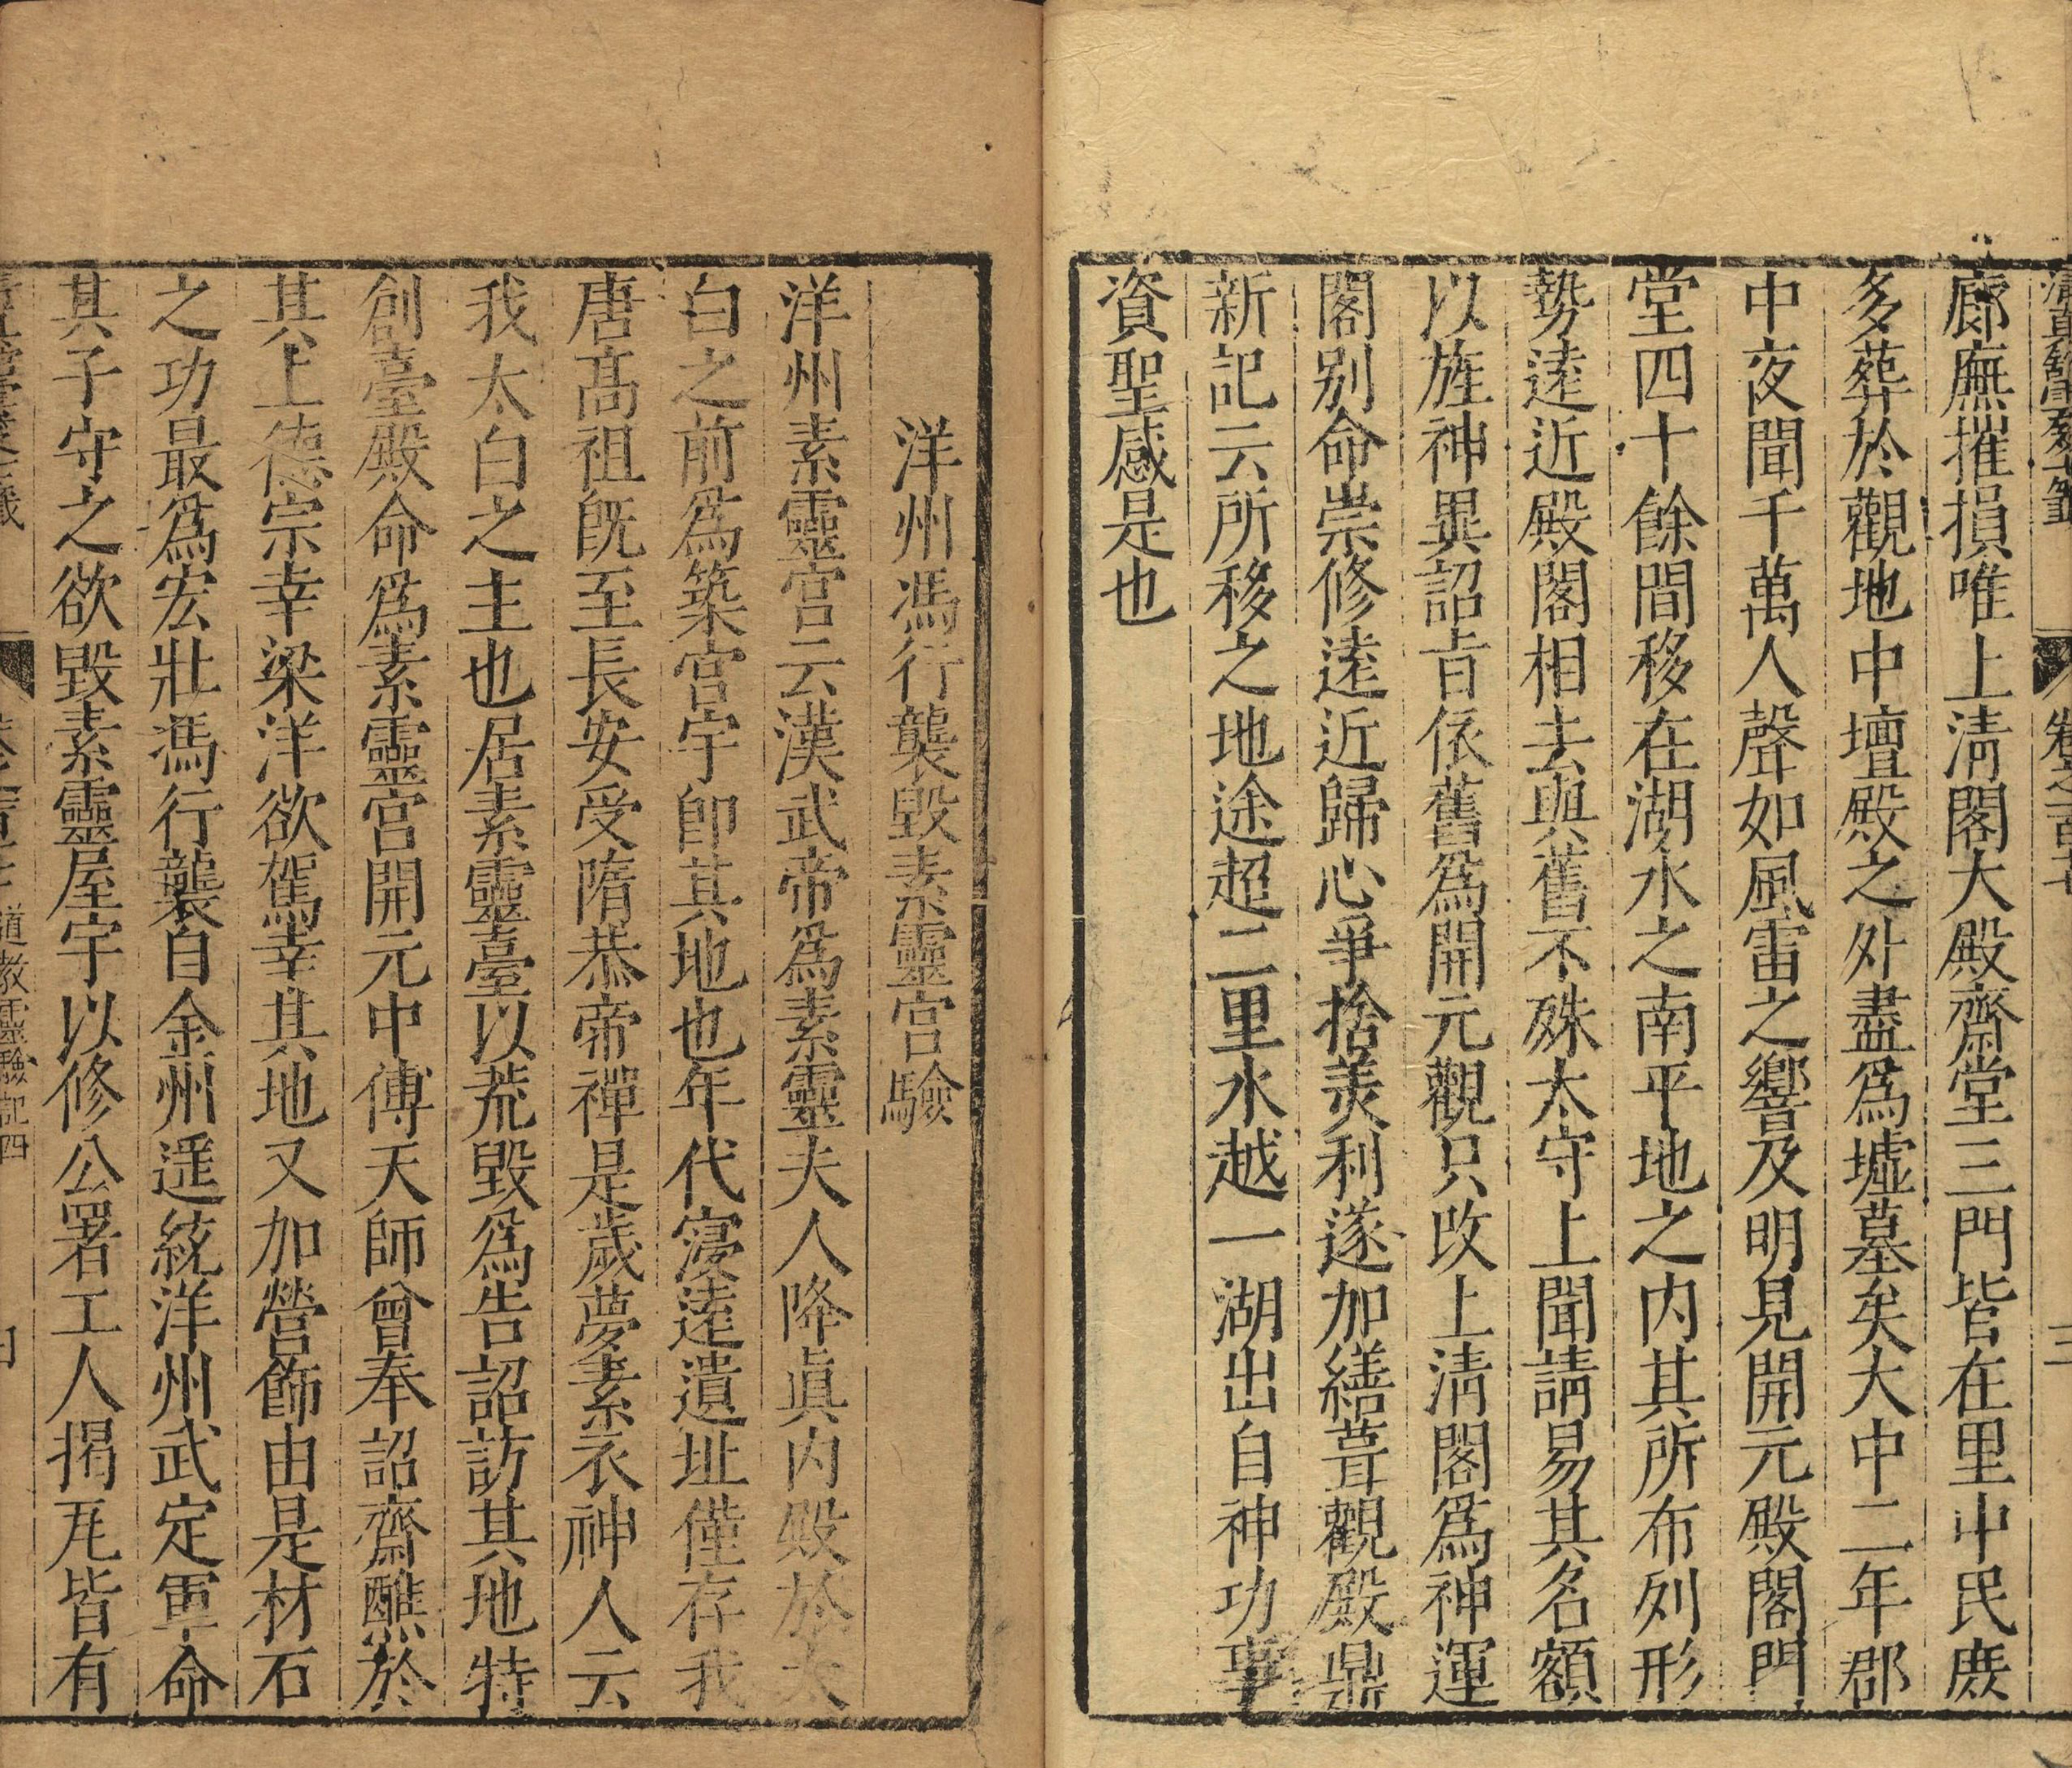 廊廡摧損唯上淸閣大殿齋堂三門皆在里中民庶
多葬於觀地中壇殿之外盡爲墟墓矣大中二年郡
中夜聞千萬人聲如風雷之響及明見開元殿閣門
堂四十餘間移在湖水之南平地之内其所布列形
勢逺近殿閣相去與舊不殊太守上聞請易其名額
以旌神異詔㫖依舊爲開元觀只改上淸閣爲神運
閣别命崇修逺近歸心爭捨羡利遂加繕葺觀殿鼎
新記云所移之地途超二里水越一湖出自神功事
資聖感是也
洋州馮行襲毀素靈宫驗
洋州素靈宫云漢武帝爲素靈夫人降眞内殿於太
白之前爲築宫宇卽其地也年代寖逺遺址僅存我
唐髙祖旣至長安受隋恭帝禪是歲夢素衣神人云
我太白之主也居素靈臺以荒毀爲告詔訪其地特
創臺殿命爲素靈宫開元中傅天師曾奉詔齋醮於
其上德宗幸梁洋欲駕幸其地又加營飾由是材石
之功最爲宏壯馮行襲自金州遥統洋州武定軍命
其子守之欲毀素靈屋宇以修公署工人揭瓦皆有
道教靈驗記四